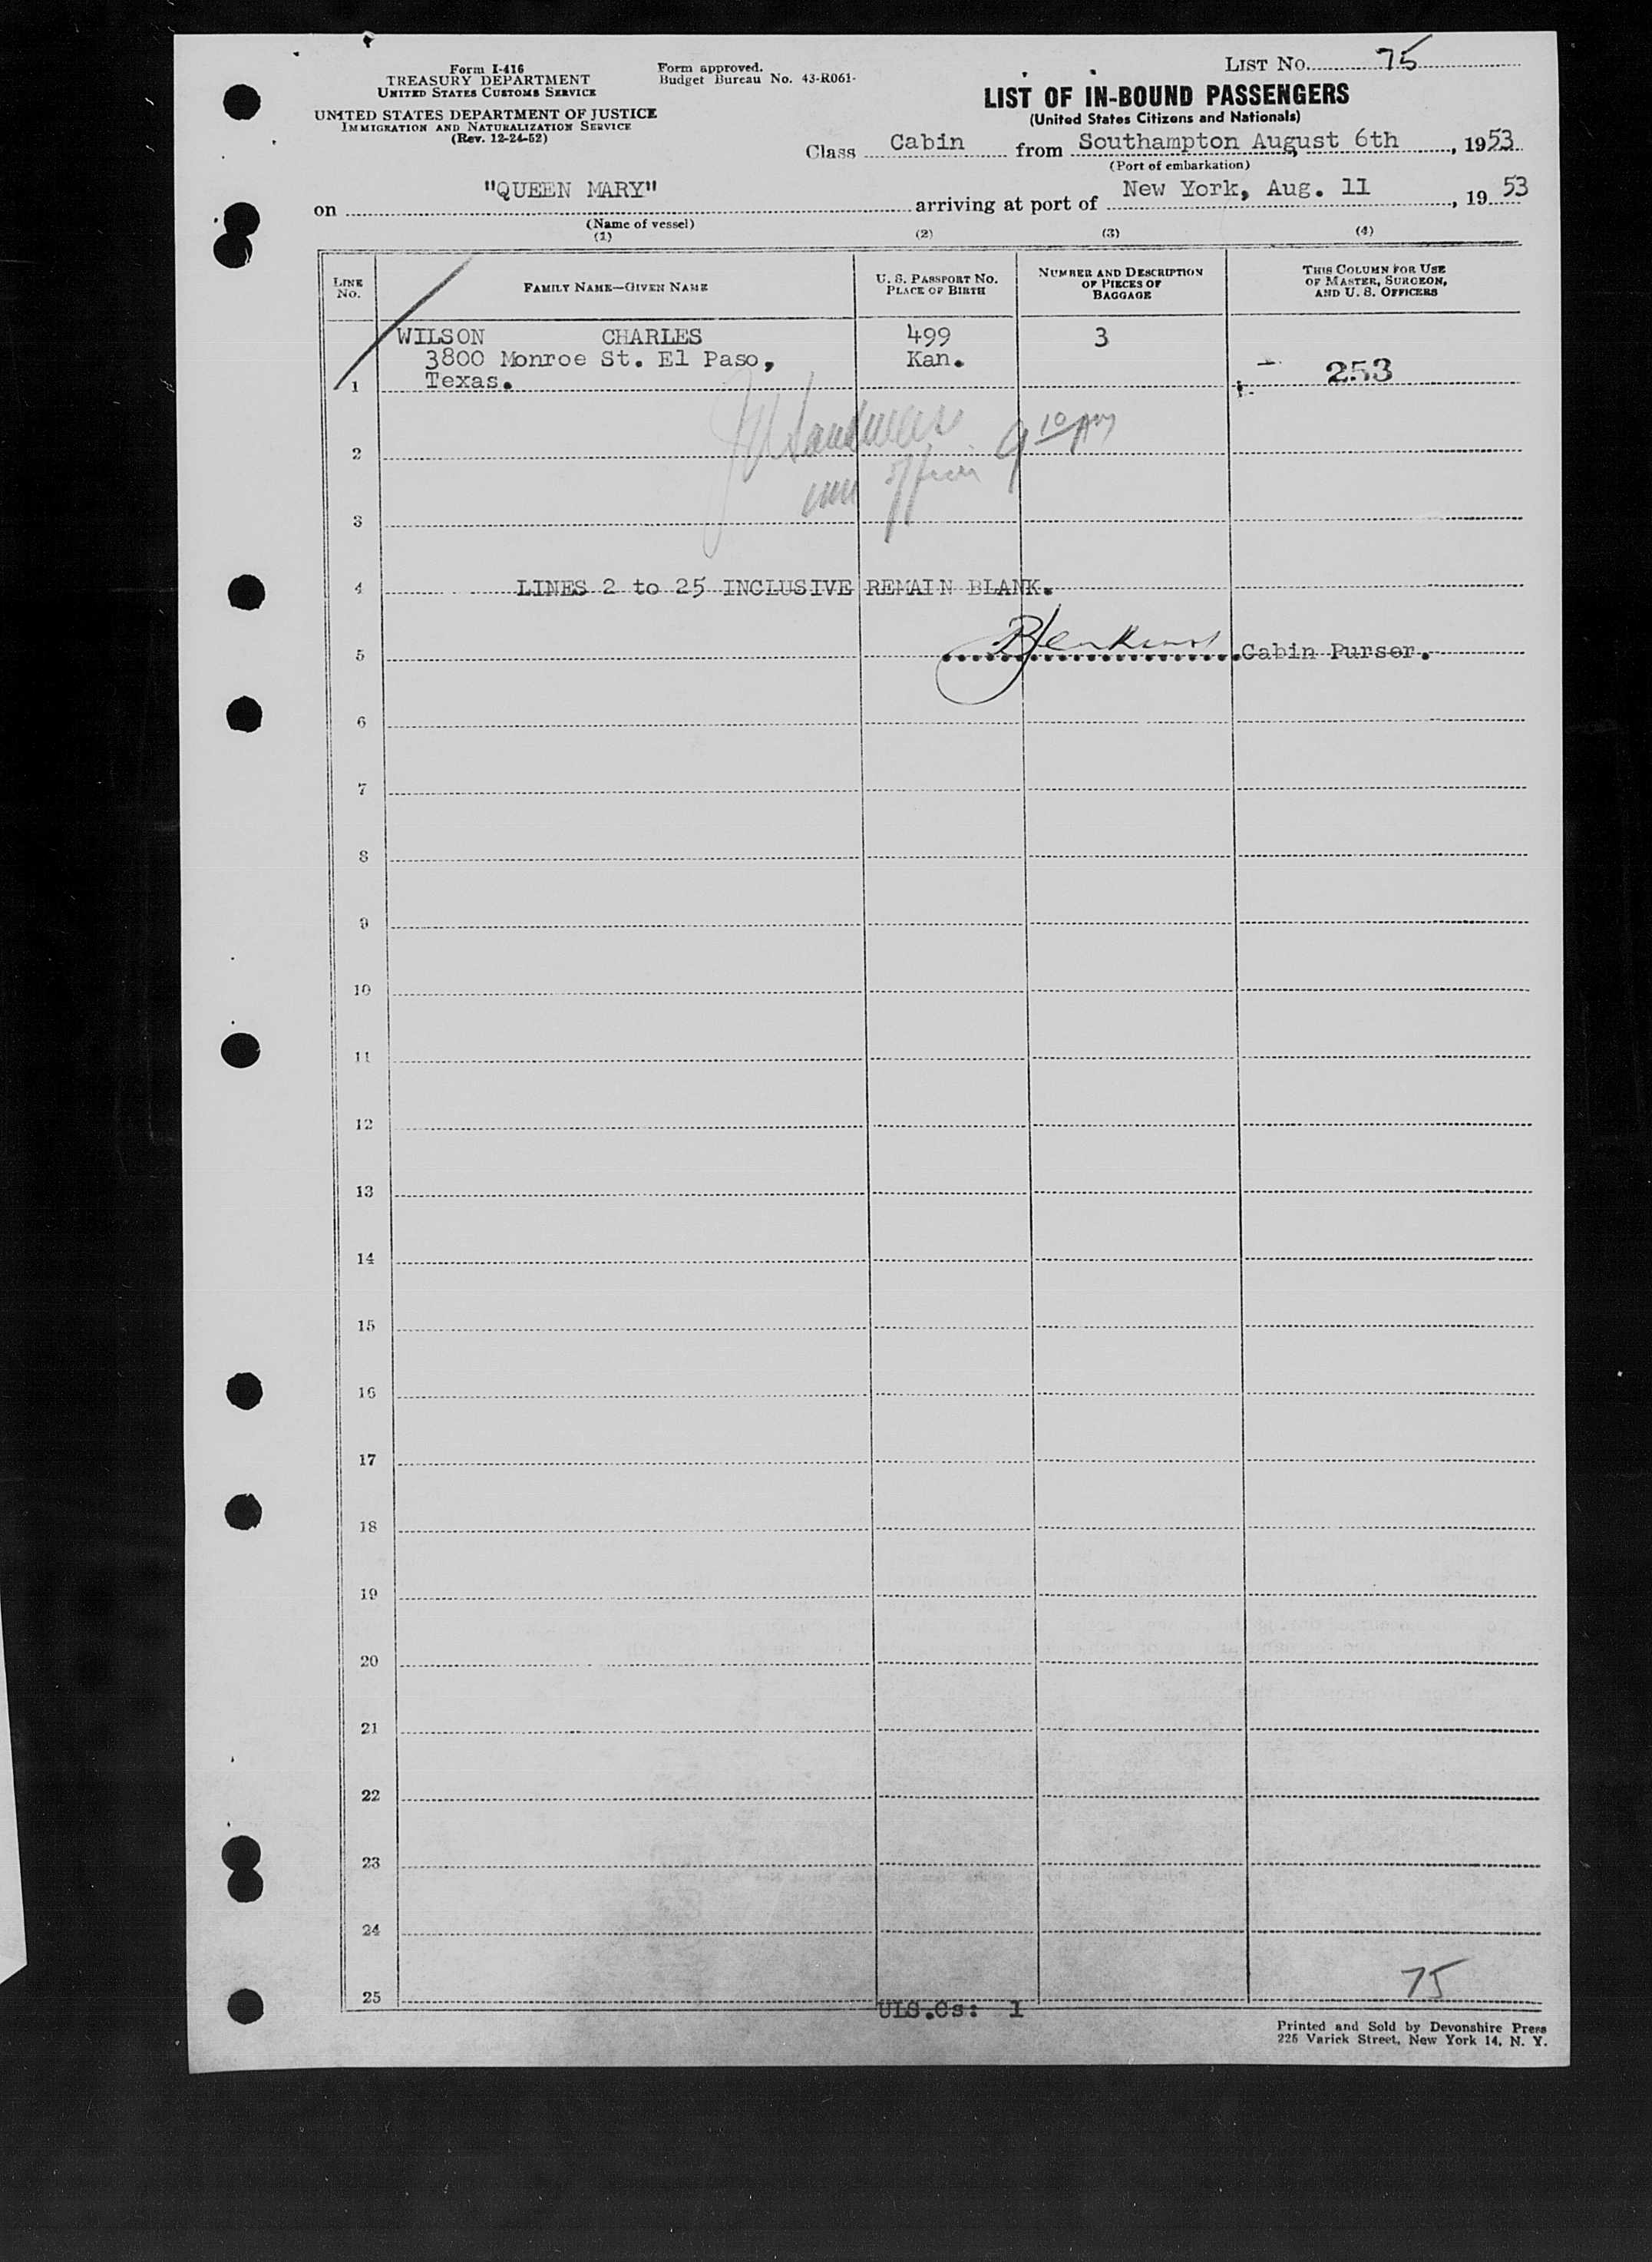 Form I-416
TREASURY DEPARTMENT
UNITED STATES CUSTOMS SERVICE
UNITED STATES DEPARTMENT OF JUSTICE
IMMIGRATION AND NATURALIZATION SERVICE
(Rev. 12-24-52)
Form approved.
Budget Bureau No. 43-R061-
LIST NO. 75
LIST OF IN-BOUND PASSENGERS
(United States Citizens and Nationals)
Class Cabin from Southampton August 6th, 1953
(Port of embarkation)
on "QUEEN MARY" arriving at port of New York, Aug. 11, 1953
(Name of vessel)
(1) (2) (3) (4)
LINE NO. FAMILY NAME—GIVEN NAME U. S. PASSPORT NO. PLACE OF BIRTH NUMBER AND DESCRIPTION OF PIECES OF BAGGAGE THIS COLUMN FOR USE OF MASTER, SURGEON, AND U. S. OFFICERS
WILSON CHARLES 499 3
3800 Monroe St. El Paso, Kan.
1 Texas. 253
9 10 AM
2
3
4 LINES 2 to 25 INCLUSIVE REMAIN BLANK.
5 Cabin Purser.
6
7
8
9
10
11
12
13
14
15
16
17
18
19
20
21
22
23
24
75
25
U.S.Cs: 1
Printed and Sold by Devonshire Press
225 Varick Street, New York 14, N. Y.